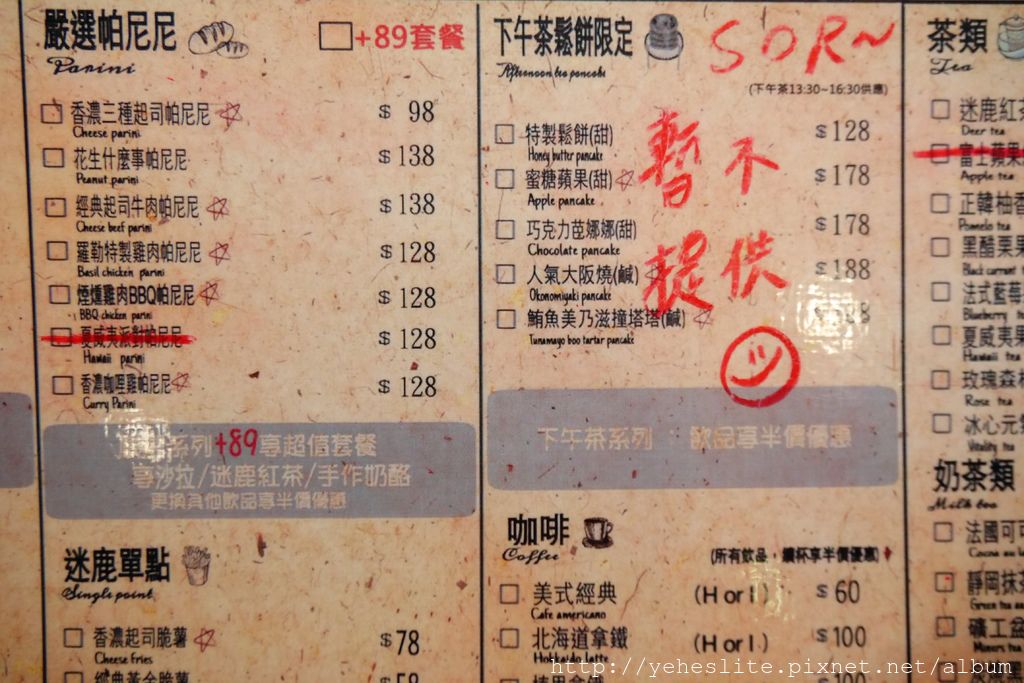 嚴選帕尼尼
Parini
+89套餐
香濃三種起司帕尼尼 $ 98
Cheese parini
花生什麼事帕尼尼 $ 138
Peanut parini
經典起司牛肉帕尼尼 $ 138
Cheese beef parini
羅勒特製雞肉帕尼尼 $ 128
Basil chicken parini
煙燻雞肉BBQ帕尼尼 $ 128
BBQ chicken parini
夏威夷派對帕尼尼 $ 128
Hawaii parini
香濃咖哩雞帕尼尼 $ 128
Curry Parini
系列+89享超值套餐
享沙拉/迷鹿紅茶/手作奶酪
更換其他飲品享半價優惠
迷鹿單點
Single point
香濃起司脆薯 $78
Cheese fries
經典黃金脆薯
下午茶鬆餅限定
Afternoon tea pancake
SOR~
(下午茶13:30~16:30供應)
特製鬆餅(甜) $128
Honey butter pancake
蜜糖蘋果(甜) $178
Apple pancake
巧克力芭娜娜(甜) $178
Chocolate pancake
人氣大阪燒(鹹) $188
Okonomiyaki pancake
鮪魚美乃滋撞塔塔(鹹)
Tunamayo boo tartar pancake
暫不
提供
下午茶系列 : 飲品享半價優惠
咖啡
Coffee
(所有飲品，續杯享半價優惠)
美式經典 (H or I) $ 60
Cafe americano
北海道拿鐵 (H or I) $100
Hokkaido latte
茶類
Tea
迷鹿紅茶
Deer tea
富士蘋果
Apple tea
正韓柚香
Pomelo tea
黑醋栗果
Black currant
法式藍莓
Blueberry
夏威夷果
Hawaii tea
玫瑰森林
Rose tea
冰心元氣
Vitality tea
奶茶類
Milk tea
法國可可
靜岡抹茶
Green tea
礦工盆
Miners tea
http://yeheslite.pixnet.net/album